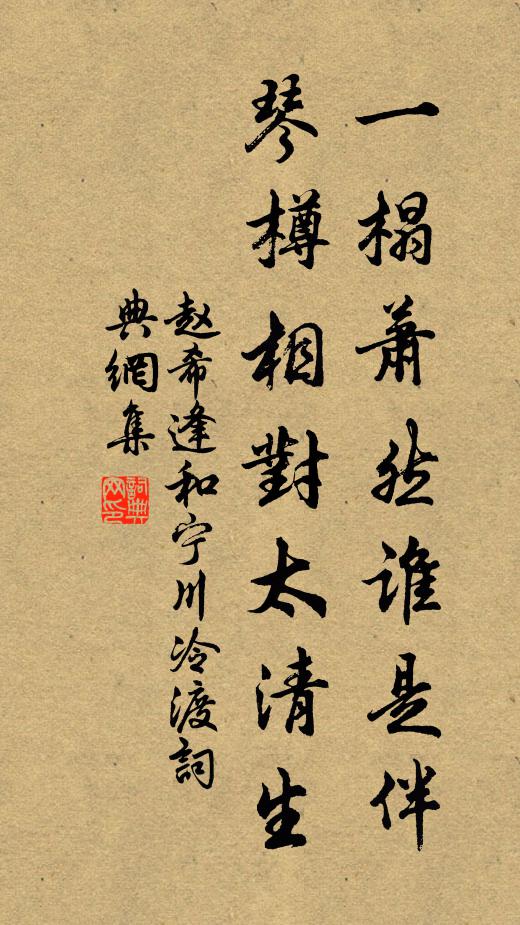 一榻蕭然誰是伴
琴樽相對太清生
赵希逢和宁川冷渡詞
典網集
詞典
网印